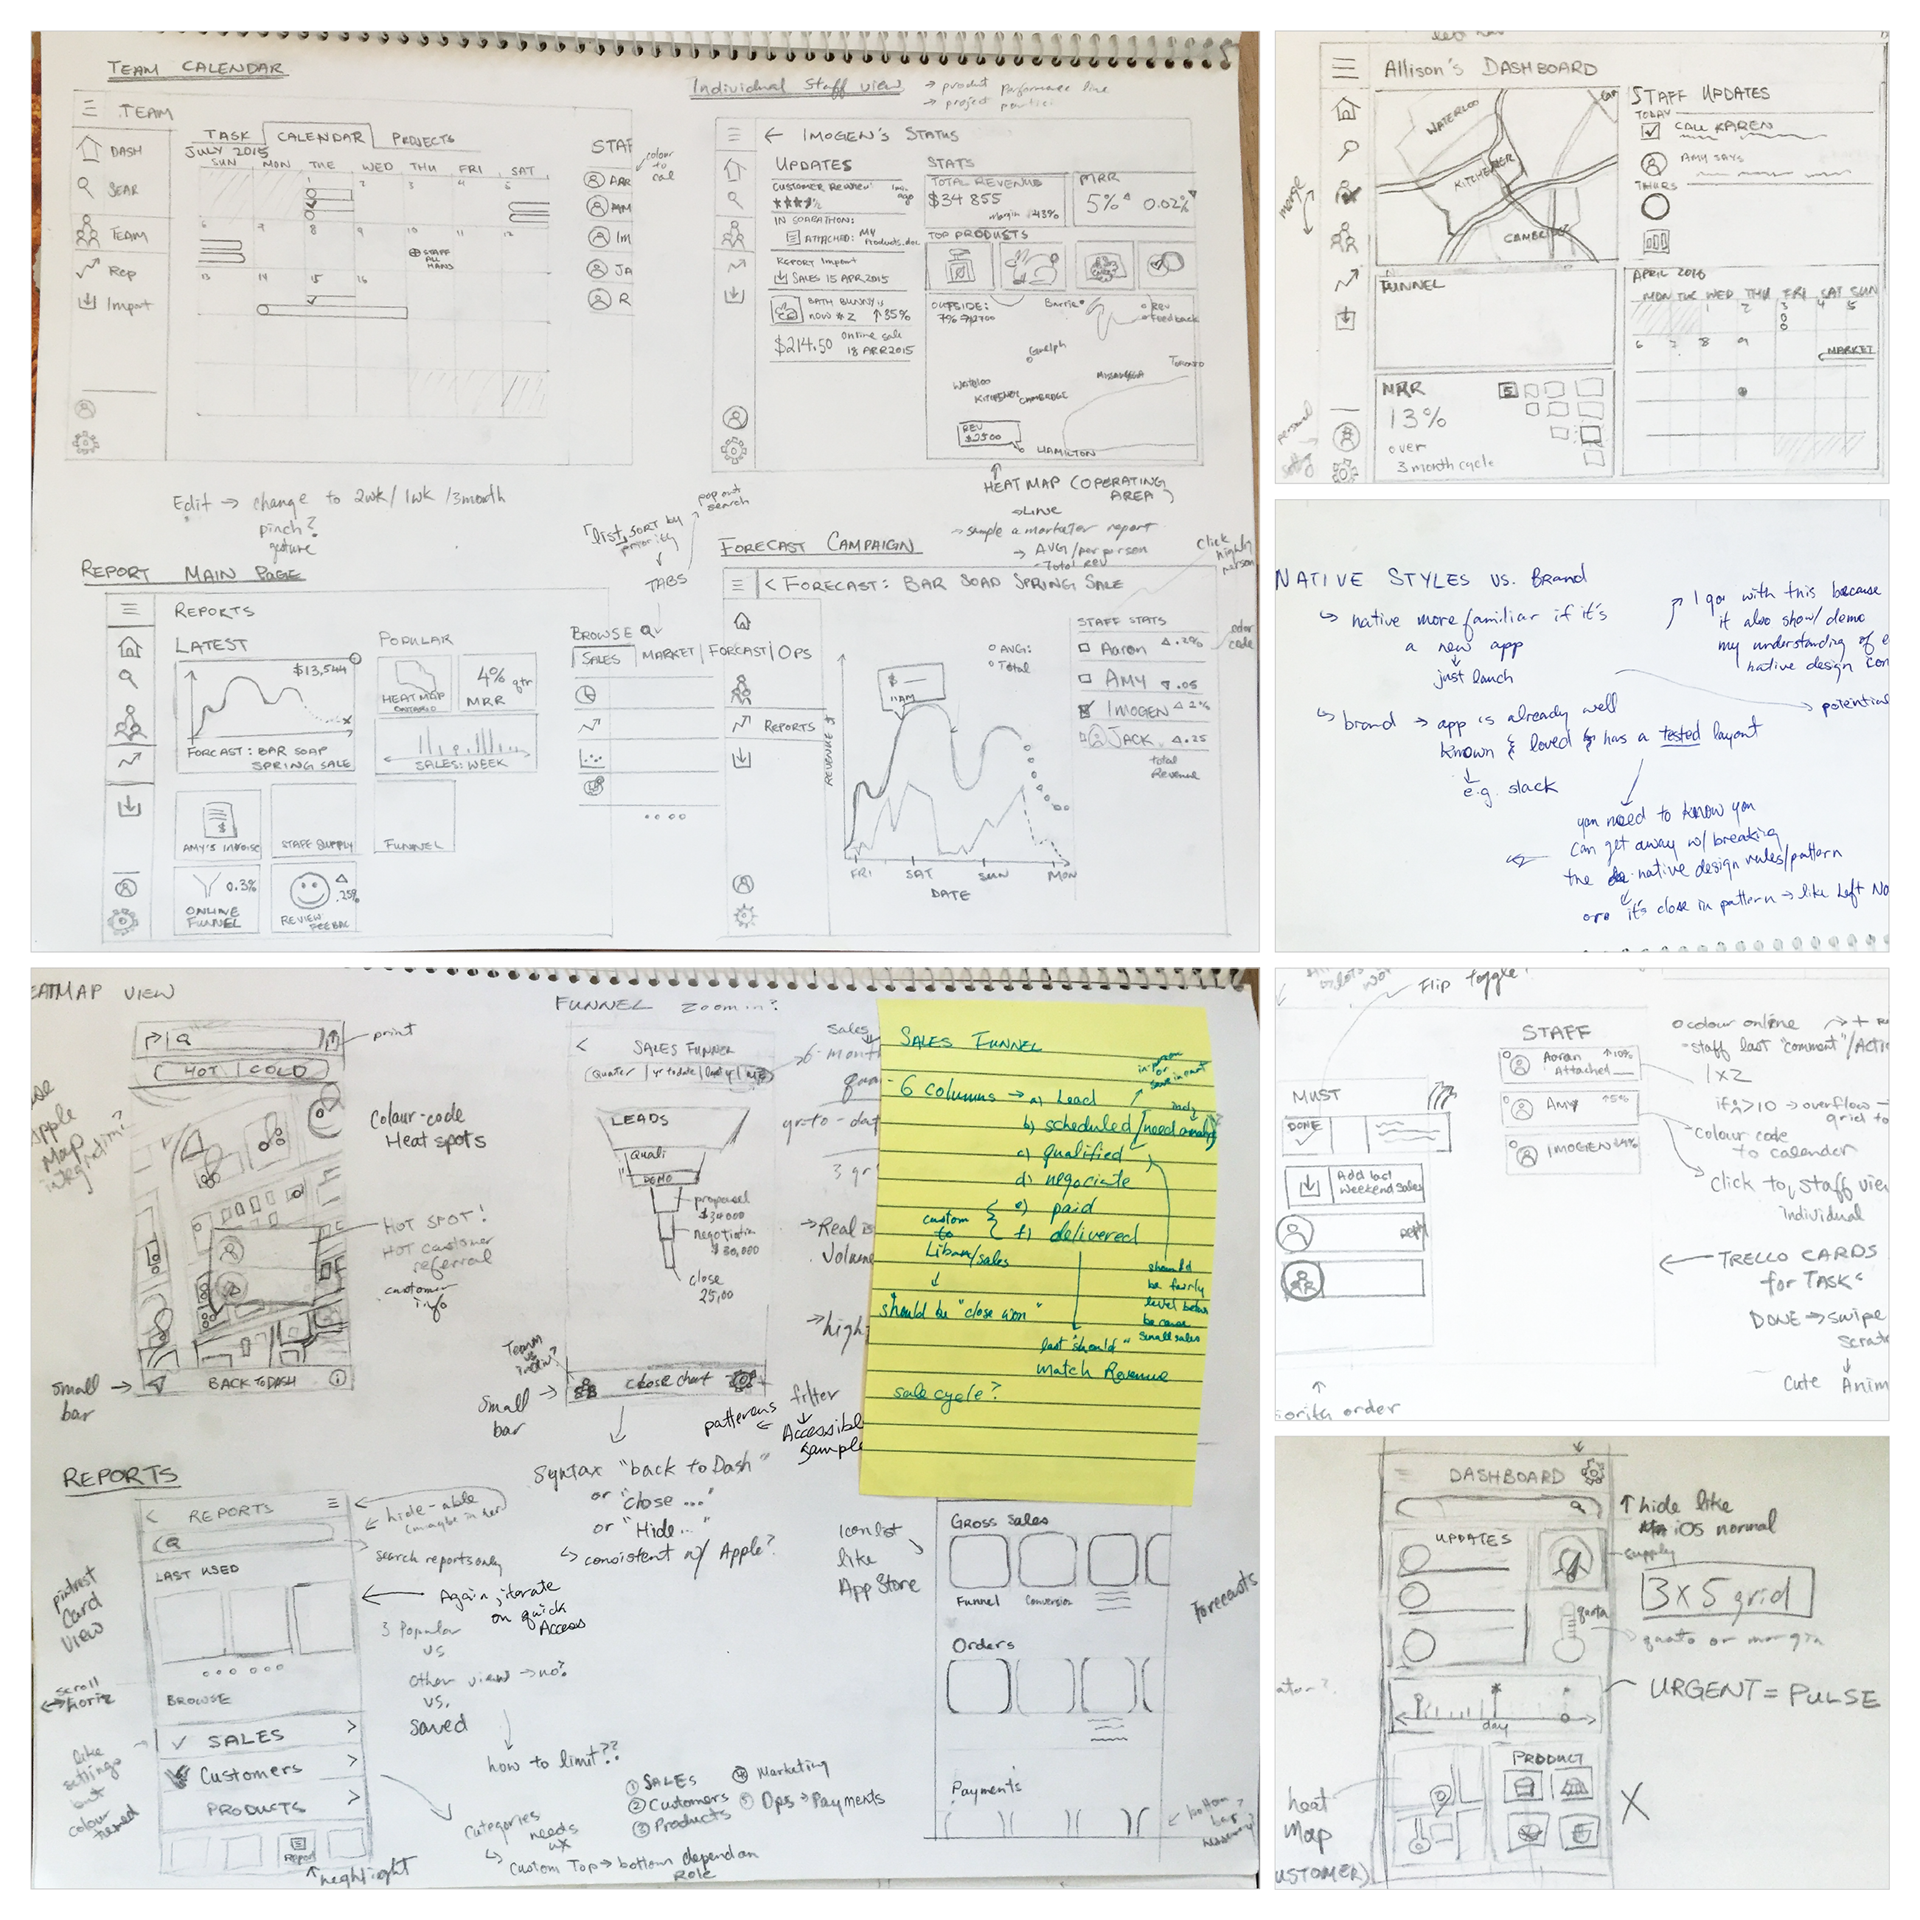 TEAM CALENDAR
TEAM
DASH
SEAR
TEAM
Rep
Import
TASK
CALENDAR
PROJECTS
JULY 2015
SUN MON TUE WED THU FRI SAT
1 2 3 4 5
6 7 8 9 10 11 12
STAFF ALL HANDS
13 14 15 16
STAF
colour to cal
AAR
AM
Im
JA
R
Edit → change to 2wk/1wk/3month
pinch?
gesture
Individual Staff view
→ product performance line
→ project
← IMOGEN'S STATUS
UPDATES
CUSTOMER REVIEW
ago
ATTACHED: MY
Products.doc
REPORT Import
SALES 15 APR 2015
BATH BUNNY is
now #2 ↑35%
$214.50
online sale
18 APR 2015
STATS
TOTAL REVENUE
$34 855
margin 43%
MRR
5% 0.02%
TOP PRODUCTS
OUTSIDE:
Barrie
Rev
feedback
Guelph
TORONTO
MISSISSAUGA
Waterloo
KITCHENER
CAMBRIDGE
REV
$2500
HAMILTON
HEATMAP (OPERATING
AREA)
→ LINE
→ sample a marketer report
→ AVG/per person
- Total rev
pop out
search
"list, SORT by
priority
TABS
click
highlig
person
REPORT MAIN PAGE
REPORTS
LATEST
$13,544
FORCAST: BAR SOAP
SPRING SALE
POPULAR
HEATMAP
ONTARIO
4% qtr
MRR
SALES: WEEK
AMY'S INVOISE
STAFF SUPPLY
FUNNEL
0.3%
ONLINE
FUNNEL
.25%
REVIEW
FEEBAC
BROWSE
SALES MARKET FORCAST OPS
FORECAST CAMPAIGN
< FORECAST: BAR SOAP SPRING SALE
REPORTS
REVENUE $
AVG:
Total
$ —
11AM
FRI SAT SUN MON
DATE
STAFF STATS
Aaron .2%
color
code
AMY .05
IMOGEN 2%
JACK .25
total
Revenue
Allison's DASHBOARD
merge
personal
WATERLOO
KITCHENER
CAMBRIDGE
STAFF UPDATES
TODAY
CALL KAREN
AMY SAYS
THURS
FUNNEL
MRR
13%
over
3 month cycle
APRIL 2016
MON TUE WED THU FRI SAT SUN
1 2 3 4 5
6 7 8 9
MARKET
NATIVE STYLES VS. Brand
native more familiar if it's
a new app
just lauch
I go with this because
it also show/demo
my understanding of e
native design con
potential
brand → app is already well
known & loved & has a tested layout
e.g. slack
you need to know you
can get away w/ breaking
the native design rules/pattern
it's close in pattern → like Left No
EATMAP VIEW
print
HOT | COLD
Apple
Map
integration?
Colour-code
Heat spots
HOT SPOT!
HOT customer
referral
customer
info
small
bar
BACK TO DASH
FUNNEL zoom in?
< SALES FUNNER
Quater | yr to date |
LEADS
Quali
DEMO
proposel
$34000
negotiation
$30,000
close
25,00
Sales
6-month
yr-to-dat
Real
Volume
→ high
Team
vs
indiv?
Small
bar
close chart
filter
Accessible
sample
patterens
Syntax "back to Dash"
or "close ..."
or "Hide..."
consistent w/ Apple?
SALES FUNNEL
6 columns → a) Lead
b) scheduled/need analys
c) qualified
d) negociate
e) paid
f) delivered
custom
to
sales
should be "close won"
should
be fairly
level below
because
small sales
last "should"
match Revenue
sale cycle?
REPORTS
< REPORTS
hide-able
search reports only
LAST USED
Again, iterate
on quick
Access
pintrest
Card
view
3 Popular
vs
Other view → no?
vs.
saved
scroll
horiz
BROWSE
SALES
Customers
PRODUCTS
like
settings
but
colour
themed
Report
heghtlight
how to limit??
Categories
needs
UX
Custom Top → bottom depend on
Role
① SALES
② Customers
③ Products
④ Marketing
⑤ Ops → Payments
Icon list
like
App Store
GROSS Sales
Funnel
Conversion
Orders
Payments
Forecasts
bottom
bar
necessary?
Flip toggle?
STAFF
Aaran ↑10%
Attached
AMY ↑5%
IMOGEN
colour online
- staff last "comment"/Acti
1x2
if >10 → overflow
grid to
-Colour code
to calender
click to, staff view
individual
TRELLO CARDS
for TASKS
DONE → swipe
Scrat
Cute Anim
MUST
DONE
Add last
weekend sales
reply
iority order
DASHBOARD
UPDATES
↑ hide like
iOS normal
supply
3x5 grid
quota
quoto or margin
day
URGENT = PULSE
PRODUCT
heat
Map
USTOMER)
X